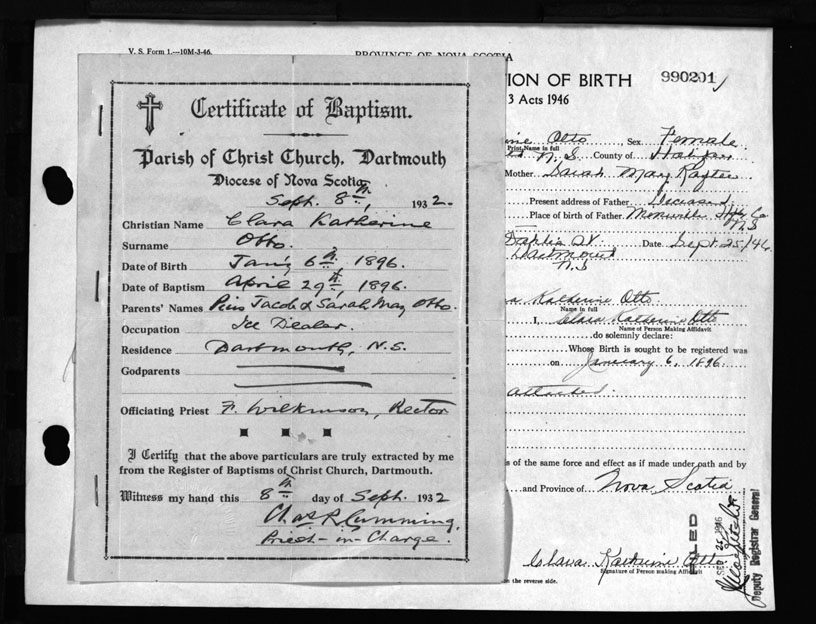 V. S. Form 1.—10M-3-46.
PROVINCE OF NOVA SCOTIA
Certificate of Baptism.
Parish of Christ Church, Dartmouth
Diocese of Nova Scotia
Sept. 8th, 1932.
Christian Name Clara Katherine
Surname Otto.
Date of Birth Jan'y 6th, 1896.
Date of Baptism April 29th, 1896.
Parents' Names Pius Jacob & Sarah May Otto.
Occupation Ice Dealer.
Residence Dartmouth, N.S.
Godparents
Officiating Priest F. Wilkinson, Rector
I Certify that the above particulars are truly extracted by me
from the Register of Baptisms of Christ Church, Dartmouth.
Witness my hand this 8th day of Sept. 1932
Chas R Cumming,
Priest-in-Charge.
ION OF BIRTH 990201
3 Acts 1946
Otto Sex Female
Print Name in full
N.S. County of Halifax
Mother Sarah May
Present address of Father Deceased
Place of birth of Father
N.S
Dahlia St. Date Sept 25/46
Dartmouth
N.S
Katherine Otto
Name in full
I, Clara Katherine Otto
Name of Person Making Affidavit
do solemnly declare:
Whose Birth is sought to be registered was
on January 6, 1896
attached
s of the same force and effect as if made under oath and by
and Province of Nova Scotia
FILED
Deputy Registrar General
Clara Katherine Otto
Signature of Person making Affidavit
on the reverse side.